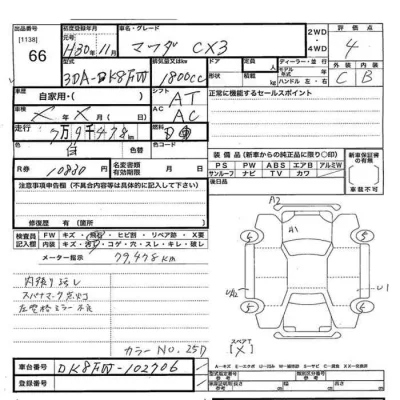 出品番号 初度登録年月 車名・グレード 2WD・4WD 評価点
[1138]
66 H30年11月 マツダ CX3 4
型式 排気量又はkw ドア 定員 人 ディーラー・並行 外装 内装
3DA-DK8FW 1800cc 形状 積載 kg モデル年式 年 ハンドル 左・右 C B
車歴 自家用・( ) シフト AT 正常に機能するセールスポイント
車検 X年X月 AC AC
走行 7万9千478km 燃料
色 白 色替 色コード
装備品(新車からの純正品に限り○印) 新車保証書の有無
R券 10830円 名変書類有効期限
PS PW ABS エアB アルミW
サンルーフ ナビ TV カワ
車載不可
注意事項申告欄(不具合内容等は具体的に記入して下さい) 後日品
修復歴 有(箇所 )
検査員記入欄 FW キズ・飛石・ヒビ割・リペア跡・X要
内装 キズ・汚レ・コゲ・穴・スレ・キレ・破レ
メーター指示 79,478km
A2
A1
内張り汚レ
スパナマーク点灯
左電格ミラー不良
U1
スペアT
[X]
カラーNO.25D
車台番号 DK8FW-102706
登録番号